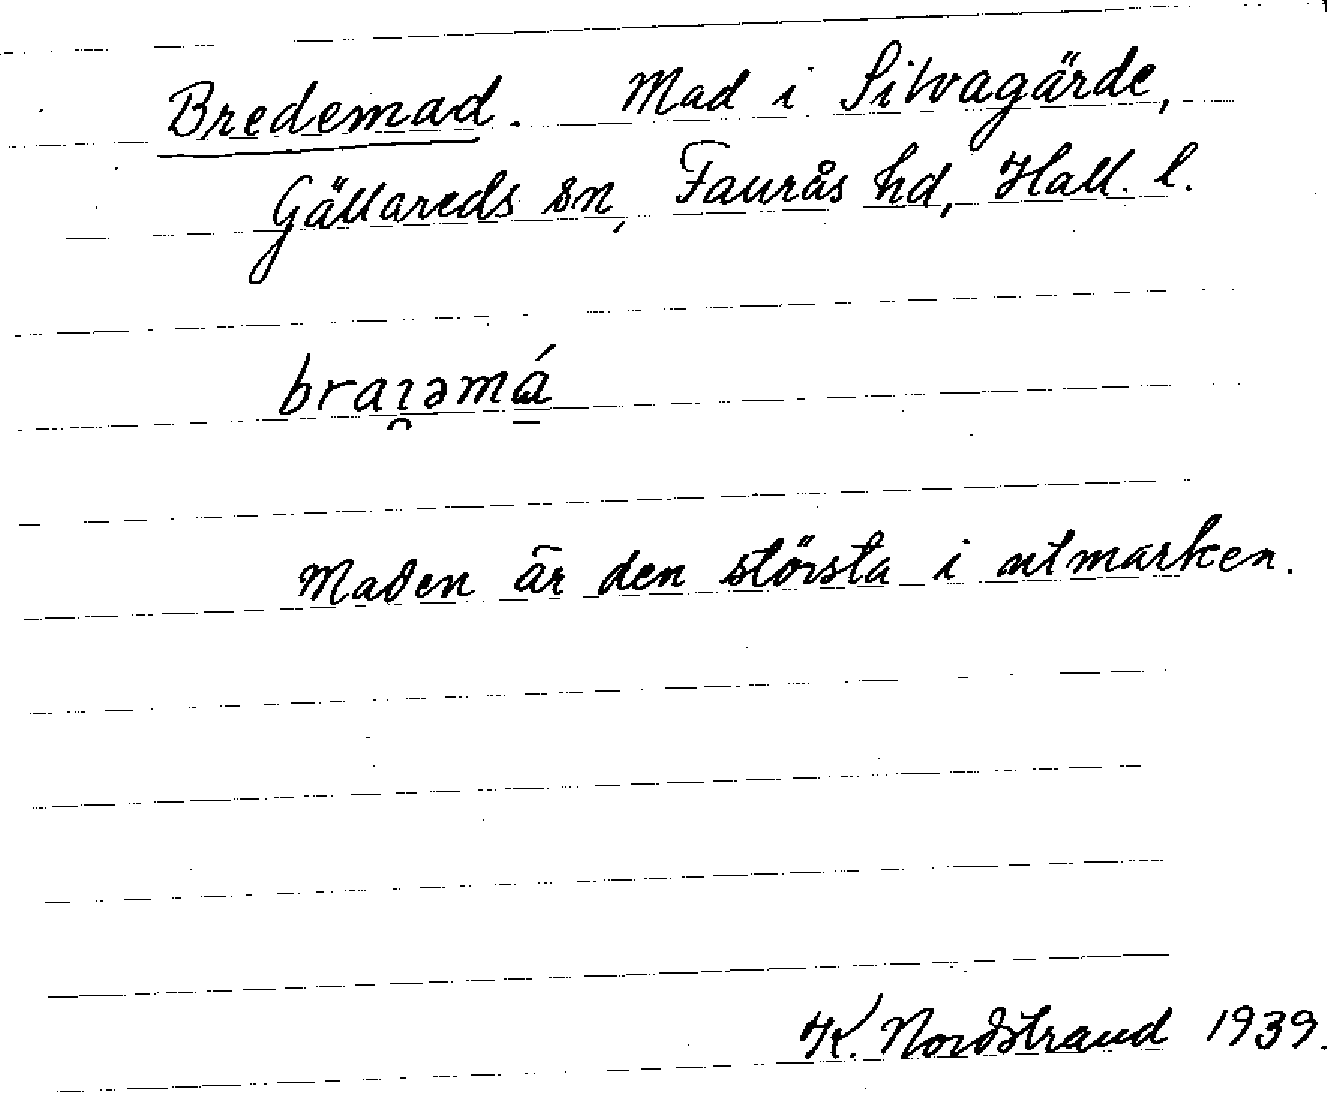 Bredemad. Mad i Sitvagärde,
Gällareds sn, Faurås hd, Hall. l.
braı̯əmá̱
Maden är den största i utmarken.
K. Nordstrand 1939.